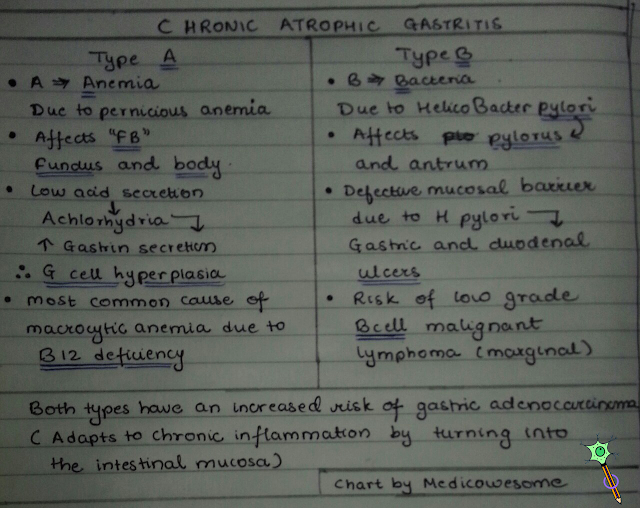 CHRONIC ATROPHIC GASTRITIS
Type A
• A ⇒ Anemia
Due to pernicious anemia
• Affects "FB"
Fundus and body.
• Low acid secretion
↓
Achlorhydria
↑ Gastrin secretion
∴ G cell hyperplasia
• most common cause of
macrocytic anemia due to
B12 deficiency
Type B
• B ⇒ Bacteria
Due to HelicoBacter pylori
• Affects pylorus
and antrum
• Defective mucosal barrier
due to H pylori
Gastric and duodenal
ulcers
• Risk of low grade
Bcell malignant
lymphoma (marginal)
Both types have an increased risk of gastric adenocarcinoma
(Adapts to chronic inflammation by turning into
the intestinal mucosa)
Chart by Medicowesome